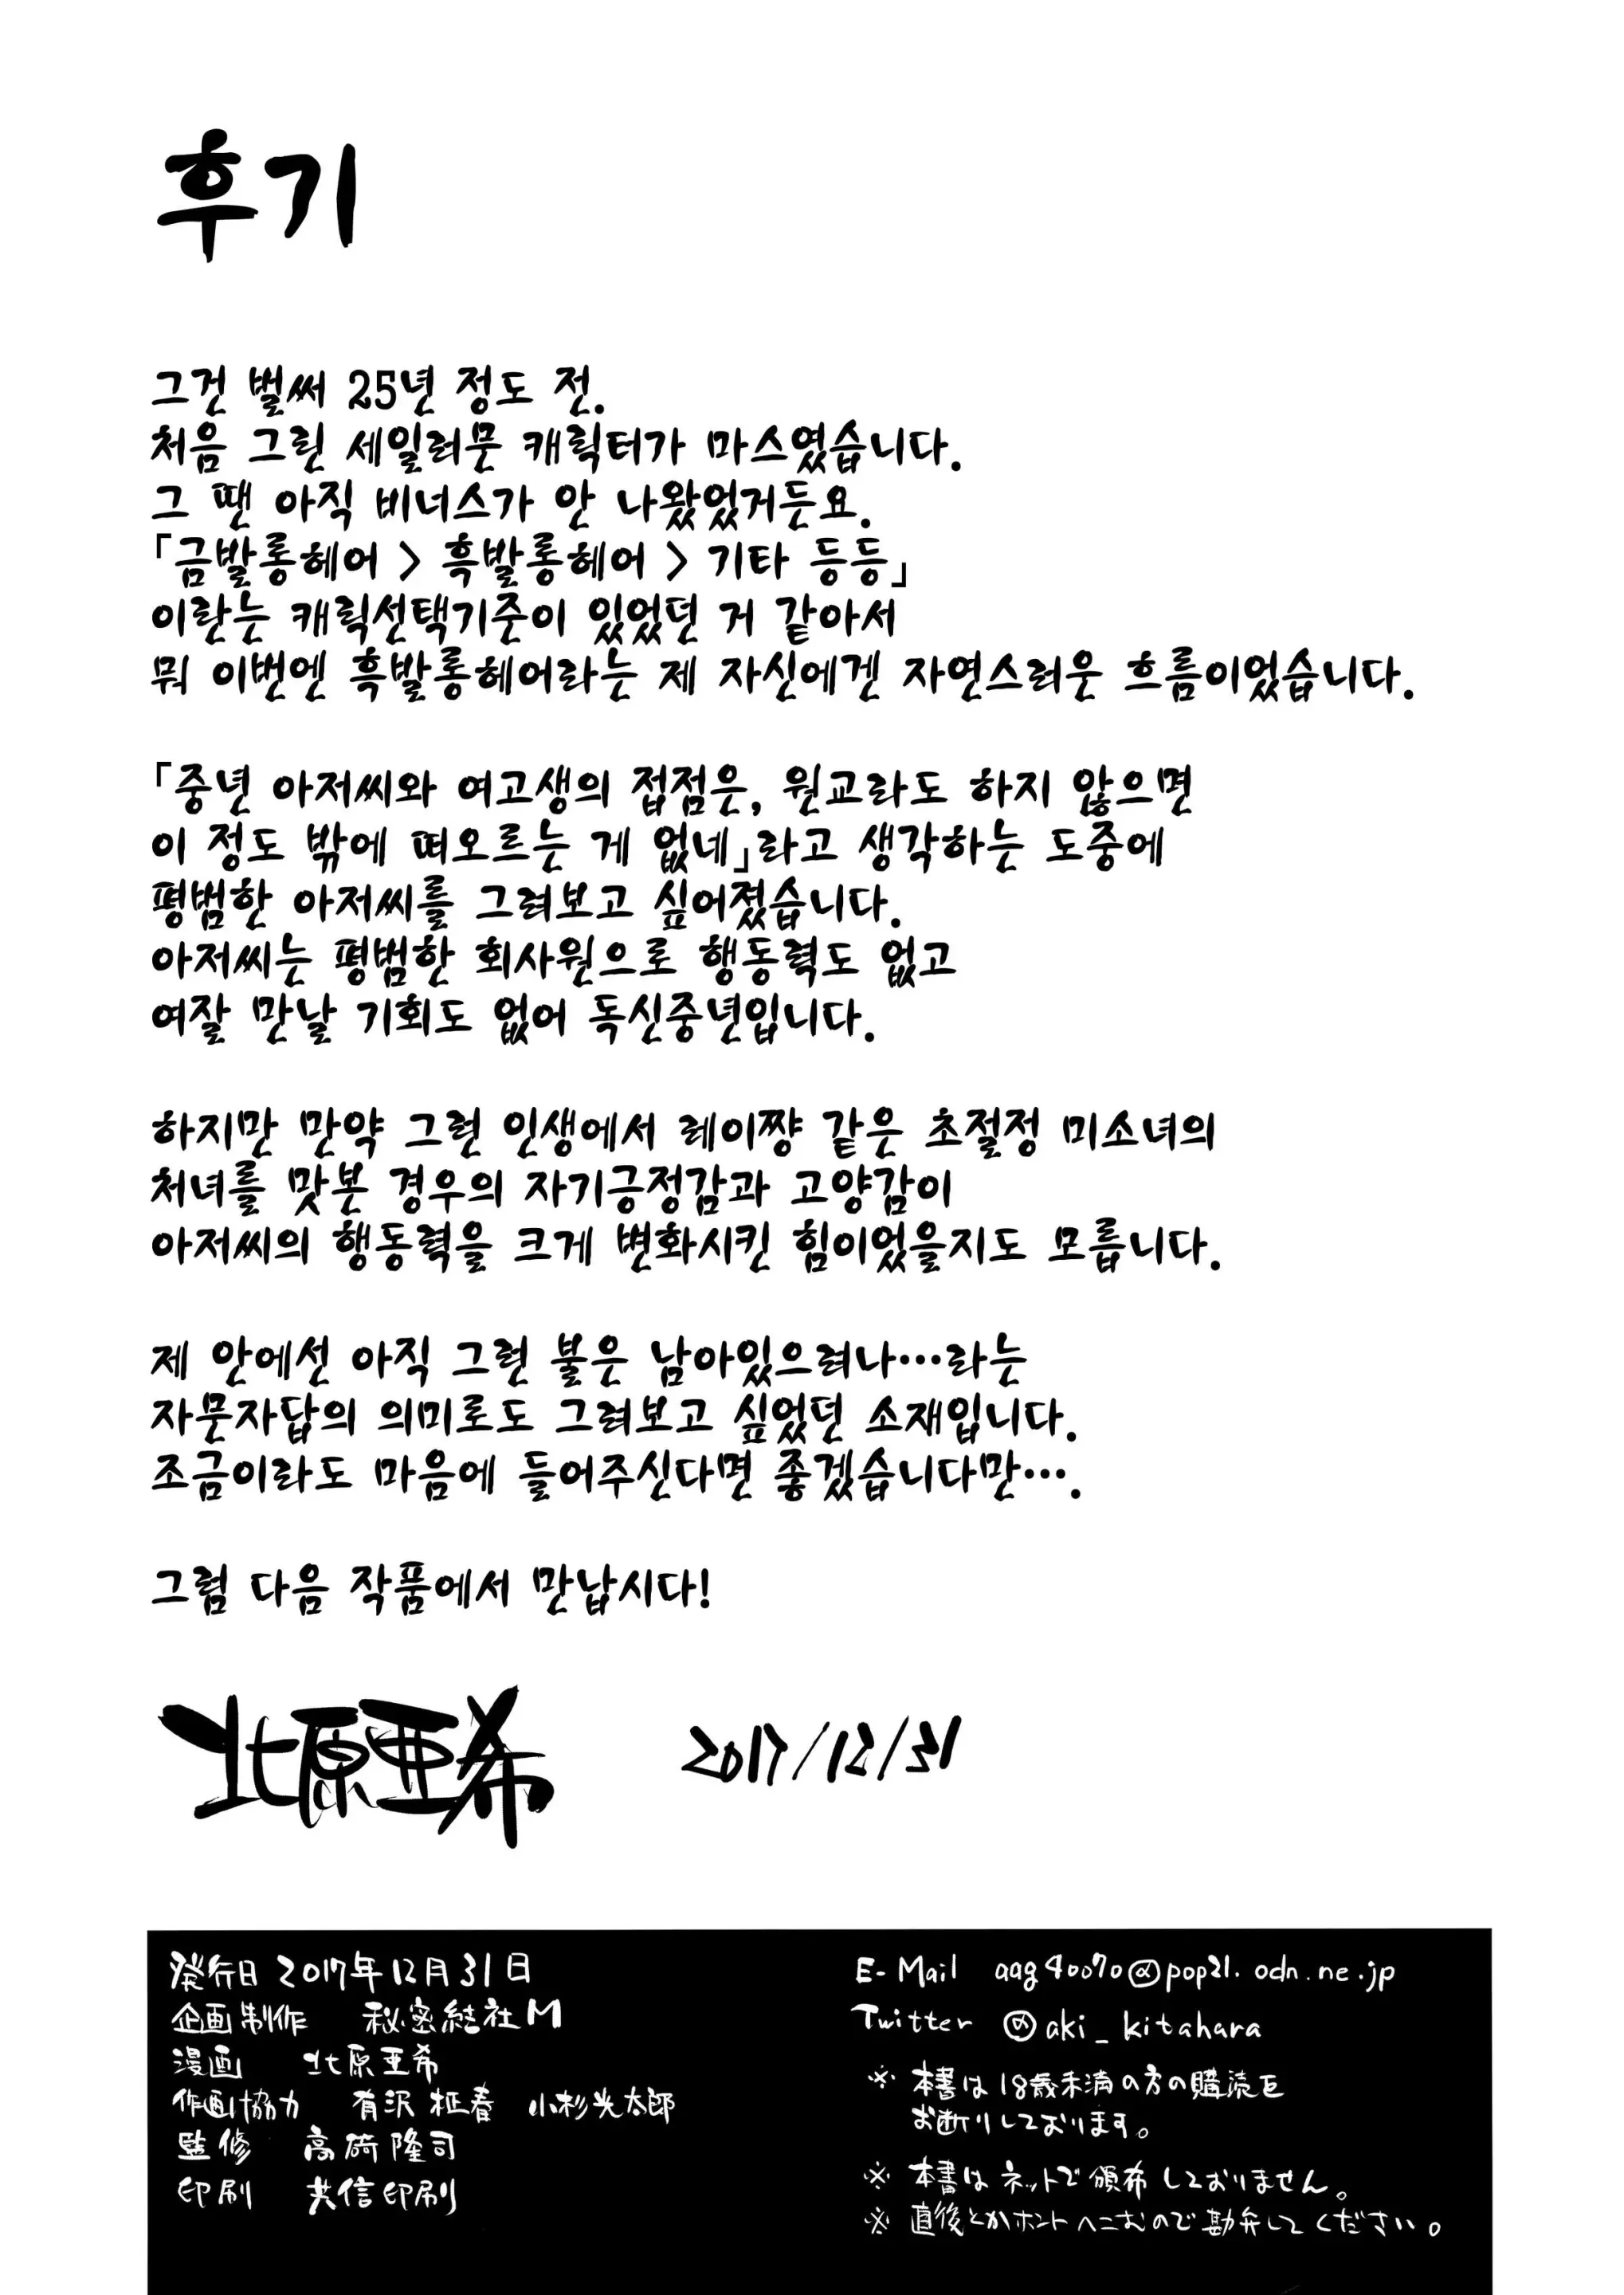 후기
그건 벌써 25년 정도 전.
처음 그린 세일러문 캐릭터가 마스였습니다.
그 땐 아직 비너스가 안 나왔었거든요.
「금발롱헤어 > 흑발롱헤어 > 기타 등등」
이란는 캐릭선택기준이 있었던 거 같아서
뭐 이번엔 흑발롱헤어라는 제 자신에겐 자연스러운 흐름이었습니다.
「중년 아저씨와 여고생의 접점은, 원교라도 하지 않으면
이 정도 밖에 떠오르는 게 없네」라고 생각하는 도중에
평범한 아저씨를 그려보고 싶어졌습니다.
아저씨는 평범한 회사원으로 행동력도 없고
여잘 만날 기회도 없어 독신중년입니다.
하지만 만약 그런 인생에서 레이쨩 같은 초절정 미소녀의
처녀를 맛본 경우의 자기긍정감과 고양감이
아저씨의 행동력을 크게 변화시킨 힘이었을지도 모릅니다.
제 안에선 아직 그런 불은 남아있으려나…라는
자문자답의 의미로도 그려보고 싶었던 소재입니다.
조금이라도 마음에 들어주신다면 좋겠습니다만….
그럼 다음 작품에서 만납시다!
北原亜希 2017/12/31
発行日 2017年12月31日
企画制作 秘密結社M
漫画 北原亜希
作画協力 有沢 柾春 小杉光太郎
監修 高崎隆司
印刷 共信印刷
E-Mail aag40070@pop21.odn.ne.jp
Twitter @aki_kitahara
※ 本書は18歳未満の方の購読を
お断りしております。
※ 本書はネットで頒布しておりません。
※ 直後とかホントヘこむので勘弁してください。